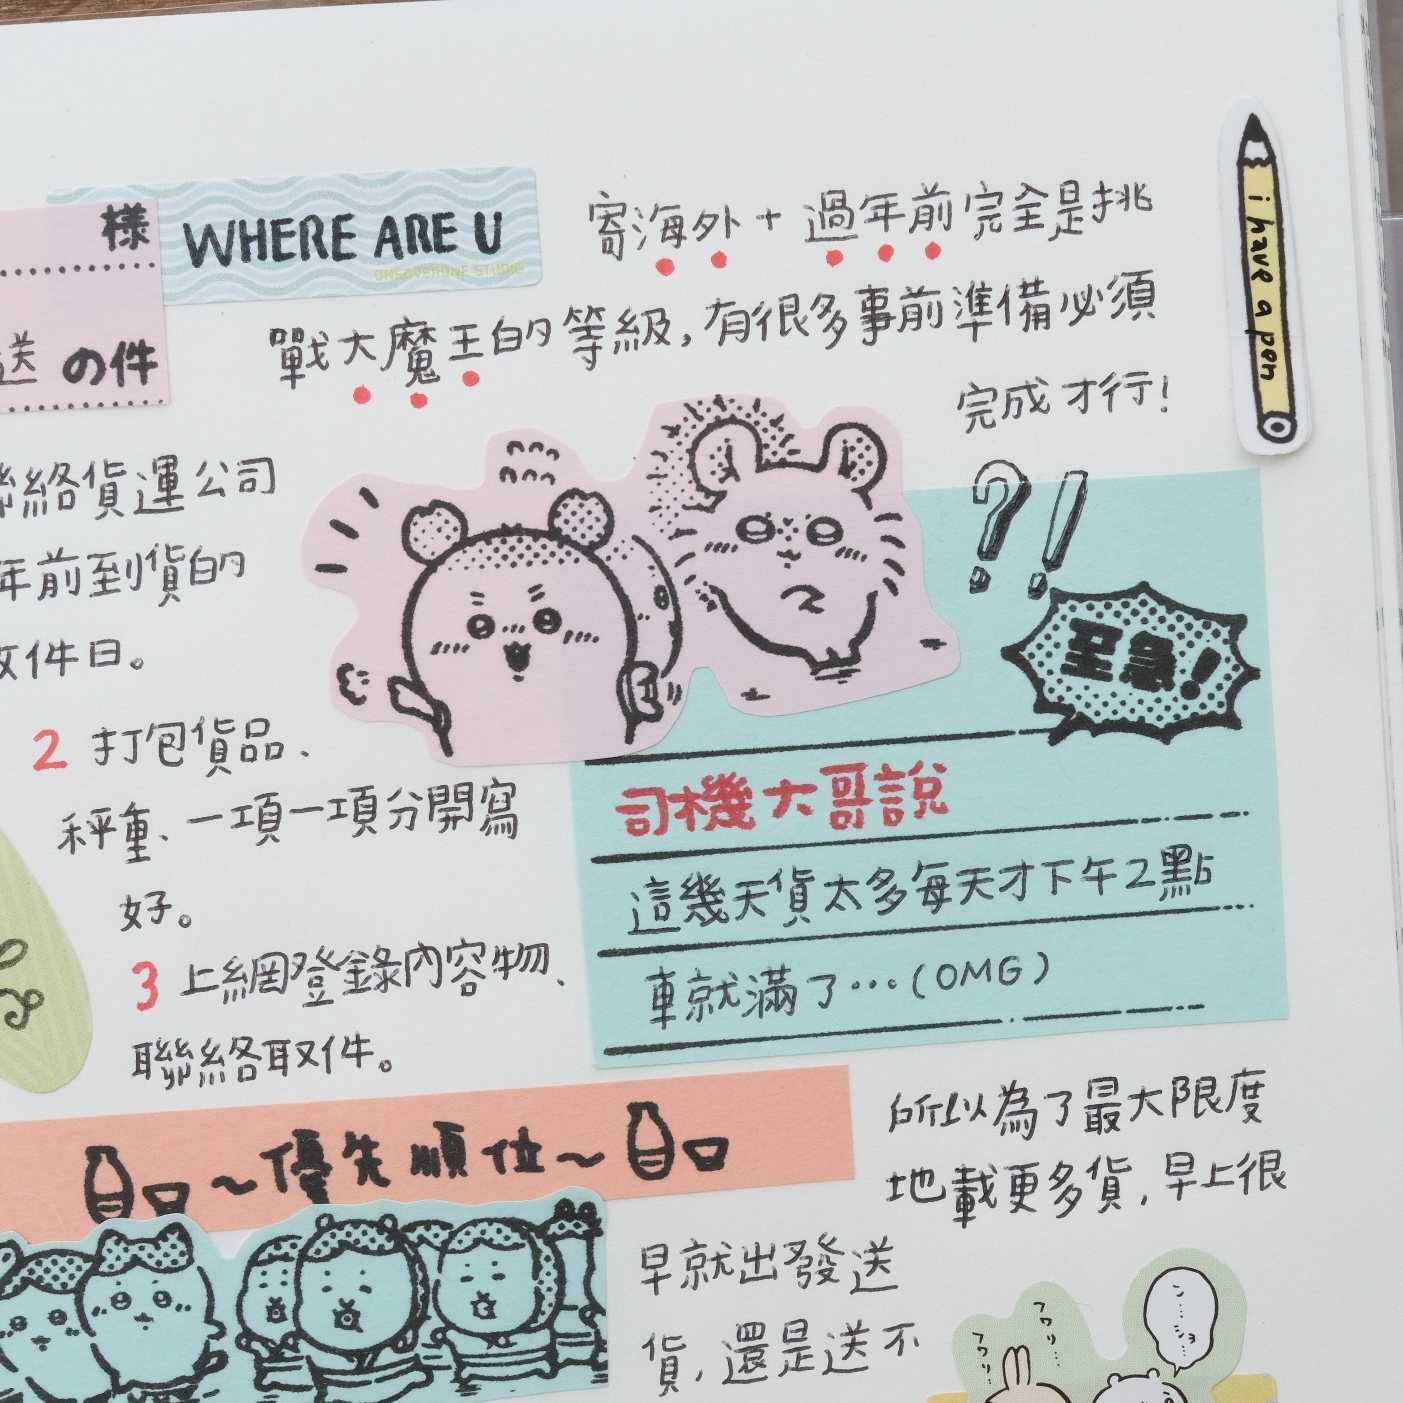 樣
送 の件
WHERE ARE U
ONEOVERONE STUDIO
寄海外+過年前完全是挑
戰大魔王的等級,有很多事前準備必須
完成才行!
i have a pen
聯絡貨運公司
年前到貨的
收件日。
2 打包貨品、
秤重、一項一項分開寫
好。
3 上網登錄內容物、
聯絡取件。
?!
至急!
司機大哥說
這幾天貨太多每天才下午2點
車就滿了…(OMG)
~優先順位~
所以為了最大限度
地載更多貨,早上很
早就出發送
貨,還是送不
フワリ…
フワリ…
ン…ショ